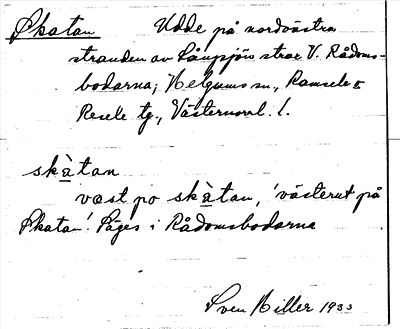 Skatan Udde på nordöstra
stranden av Långsjön strax V. Rådoms-
bodarna; Helgums sn, Ramsele o
Resele tg., Västernorrl. l.
skàtan
vast po skàtan, 'västerut på
Skatan'. Säges i Rådomsbodarna
Sven Hiller 1933